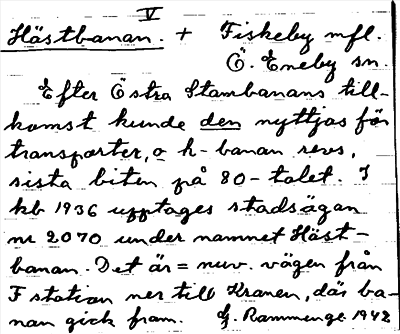 V
Hästbanan. + Fiskeby mfl.
Ö. Eneby sn.
Efter Östra Stambanans till-
komst kunde den nyttjas för
transporter, o h-banan revs,
sista biten på 80-talet. I
kb 1936 upptages stadsägan
nr 2070 under namnet Häst-
banan. Det är = nuv. vägen från
F station ner till Kranen, där ba-
nan gick fram. G. Ramminge 1942